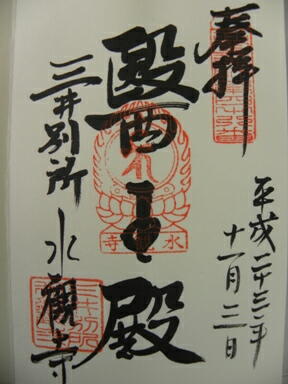 奉拝
平成二十三年
十一月三日
醫王殿
三井別所
水觀寺
水觀寺